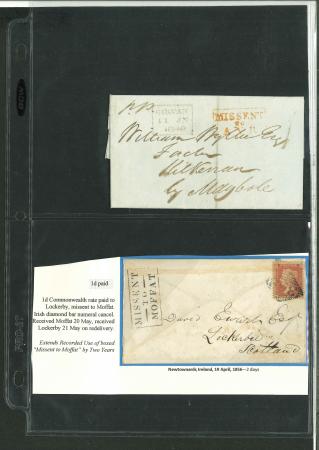 GIRVAN
MISSENT
William Wyllie Esq
Factor
Kilkerran
by Maybole
1d paid
1d Commonwealth rate paid to
Lockerby, missent to Moffat.
Irish diamond bar numeral cancel.
Received Moffat 20 May, received
Lockerby 21 May on redelivery.
Extends Recorded Use of boxed
"Missent to Moffat" by Two Years
MISSENT
TO
MOFFAT
David Ewart Esq
Lockerbie
Scotland
Newtownards Ireland, 19 April, 1856—2 days